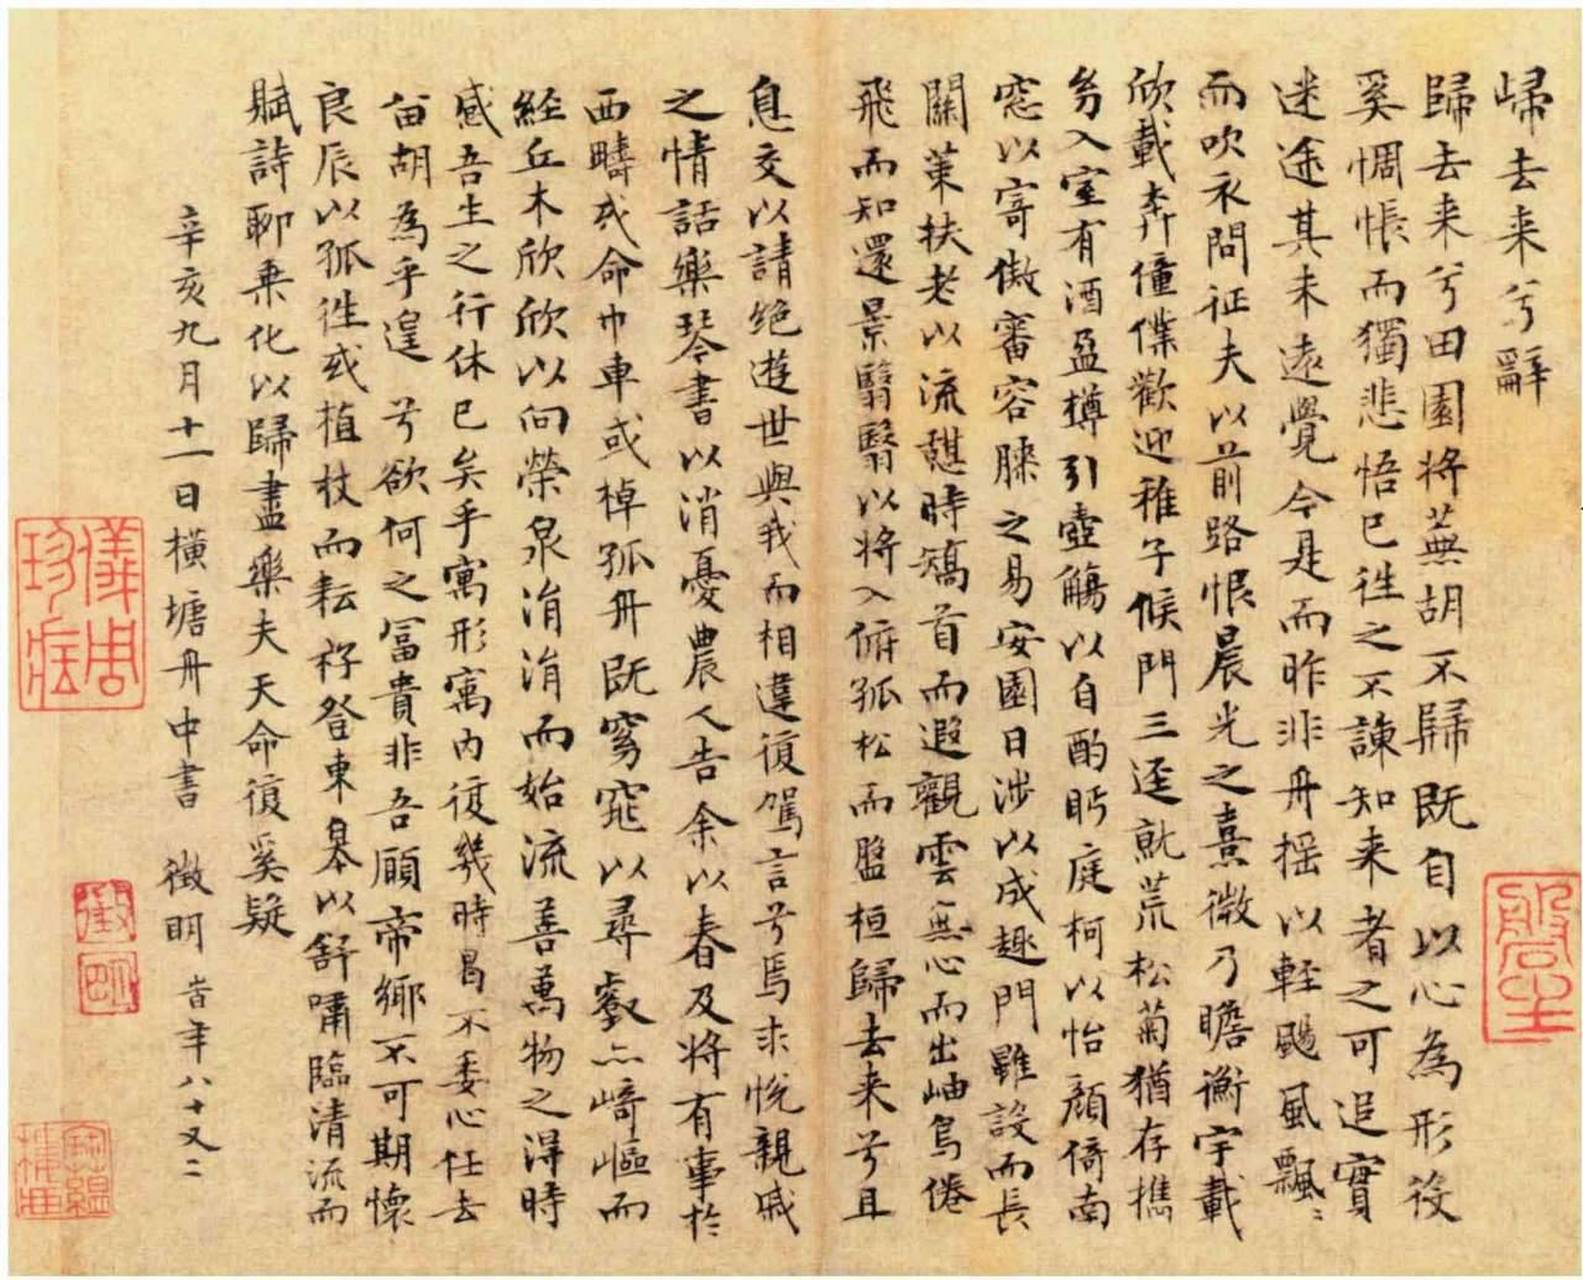 歸去来兮辭
歸去来兮田園將蕪胡不歸既自以心為形役
奚惆悵而獨悲悟已往之不諫知来者之可追實
迷途其未遠覺今是而昨非舟摇以輕颺風飄〻
而吹衣問征夫以前路恨晨光之熹微乃瞻衡宇載
欣載奔僮僕歡迎稚子候門三逕就荒松菊猶存携
幼入室有酒盈樽引壺觴以自酌眄庭柯以怡顔倚南
窓以寄傲審容膝之易安園日涉以成趣門雖設而長
關策扶老以流憩時矯首而遐觀雲無心而出岫鳥倦
飛而知還景翳翳以將入俯孤松而盤桓歸去来兮且
息交以請絶遊世與我而相違復駕言兮焉求悅親戚
之情話樂琴書以消憂農人告余以春及將有事於
西疇或命巾車或棹孤舟既窈窕以尋壑亦崎嶇而
經丘木欣欣以向榮泉涓涓而始流善萬物之得時
感吾生之行休已矣乎寓形寓内復幾時曷不委心任去
留胡為乎遑兮欲何之冨貴非吾願帝鄉不可期懷
良辰以孤往或植杖而耘耔登東皋以舒嘯臨清流而
賦詩聊乘化以歸盡樂夫天命復奚疑
辛亥九月十一日横塘舟中書 徵明 旹年八十又二
徵
明